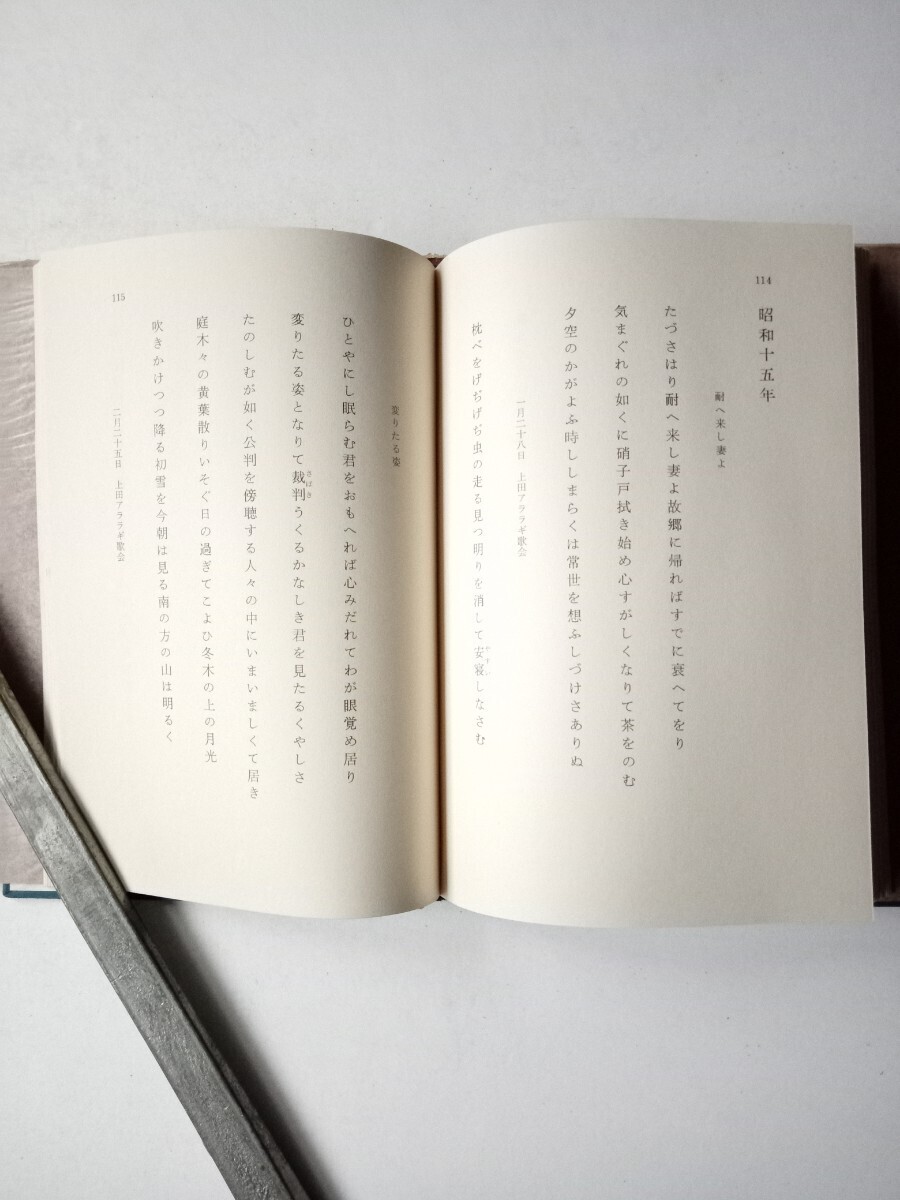 114
昭和十五年
耐へ来し妻よ
たづさはり耐へ来し妻よ故郷に帰ればすでに衰へてをり
気まぐれの如くに硝子戸拭き始め心すがしくなりて茶をのむ
夕空のかがよふ時ししまらくは常世を想ふしづけさありぬ
一月二十八日 上田アララギ歌会
枕べをげぢげぢ虫の走る見つ明りを消して安寝しなさむ
変りたる姿
ひとやにし眠らむ君をおもへれば心みだれてわが眼覚め居り
変りたる姿となりて裁判うくるかなしき君を見たるくやしさ
さばき
たのしむが如く公判を傍聴する人々の中にいまいましくて居き
庭木々の黄葉散りいそぐ日の過ぎてこよひ冬木の上の月光
二月二十五日 上田アララギ歌会
吹きかけつつ降る初雪を今朝は見る南の方の山は明るく
115